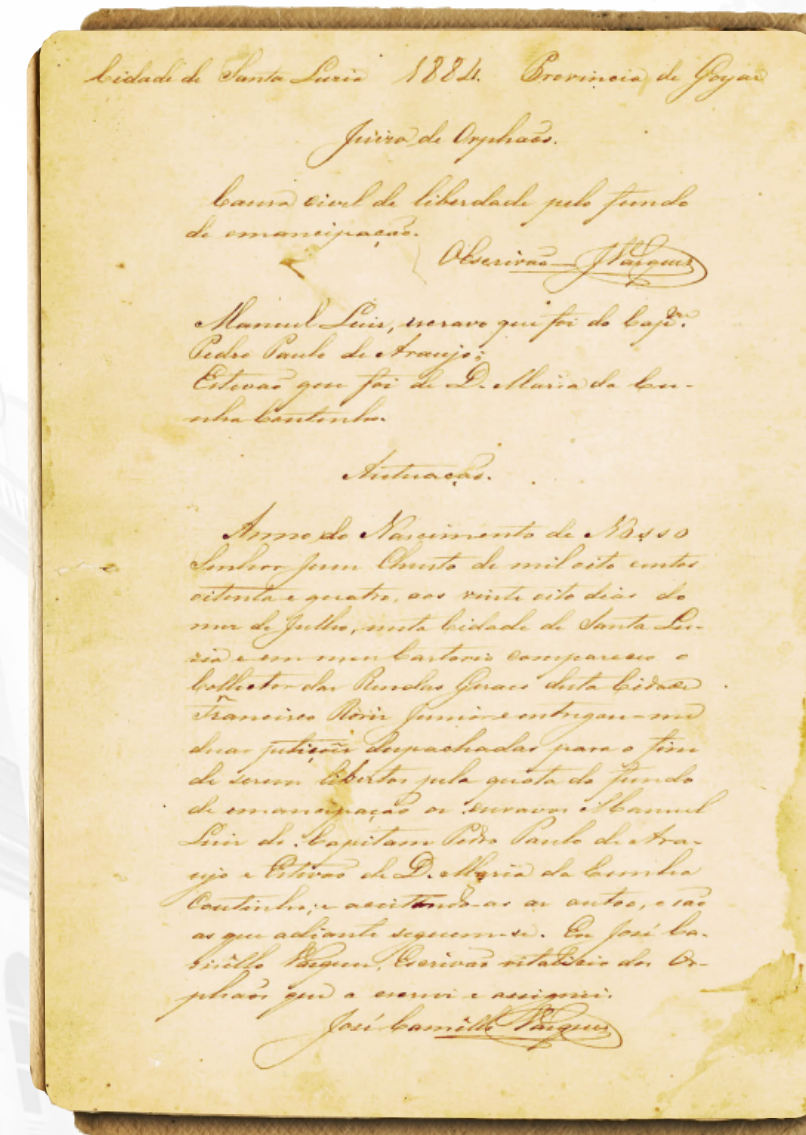 Cidade de Santa Luzia 1884. Provincia de Goyaz
Juizo de Orphãos.
Causa civel de liberdade pelo fundo
de emancipação.
O Escrivão J Vargues
Manuel Luis, escravo que foi do Capm.
Pedro Paulo de Araujo;
Estevão que foi de D. Maria da Cu-
nha Coutinho
Autuação.
Anno do Nascimento de Nosso
Senhor Jesus Christo de mil oito centos
oitenta e quatro, aos vinte oito dias do
mez de Julho, nesta Cidade de Santa Lu-
zia e em meu Cartorio compareceu o
Collector das Rendas Geraes desta Cidade
Francisco Roriz Junior e entregou-me
duas petições despachadas para o fim
de serem libertos pela quota do fundo
de emancipação os escravos Manuel
Luis do Capitam Pedro Paulo de Ara-
ujo e Estevão de D. Maria da Cunha
Coutinho; e as autos, e são
as que adiante seguem-se. Eu José Ca-
millo Vargues, Escrivão vitalicio dos Or-
phãos que o escrevi e assignei.
José Camillo Vargues